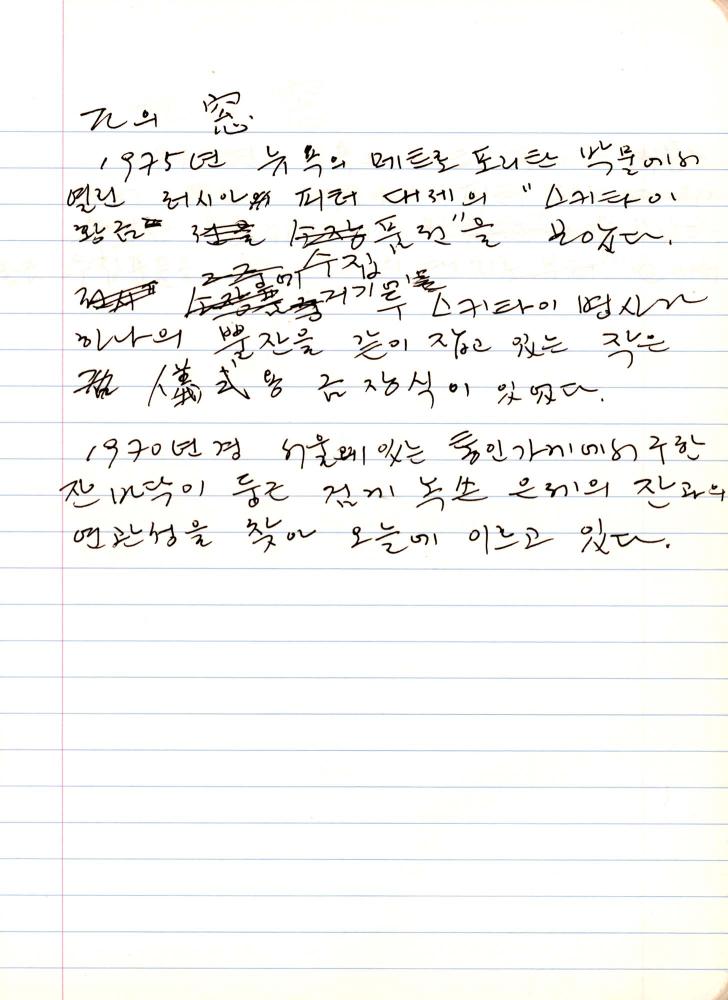 ㄹ의 窓
1975년 뉴욕의 메트로포리탄 박물에서
열린 러시아 피터 대제의 "스키타이
황금 품전"을 보았다.
수집
거기 두 스키타이 병사가
하나의 뿔잔을 같이 잡고 있는 작은
儀式용 금장식이 있었다.
1970년경 서울에 있는 통인가게에서 구한
잔바닥이 둥근 검게 녹쓴 은제의 잔과의
연관성을 찾아 오늘에 이르고 있다.